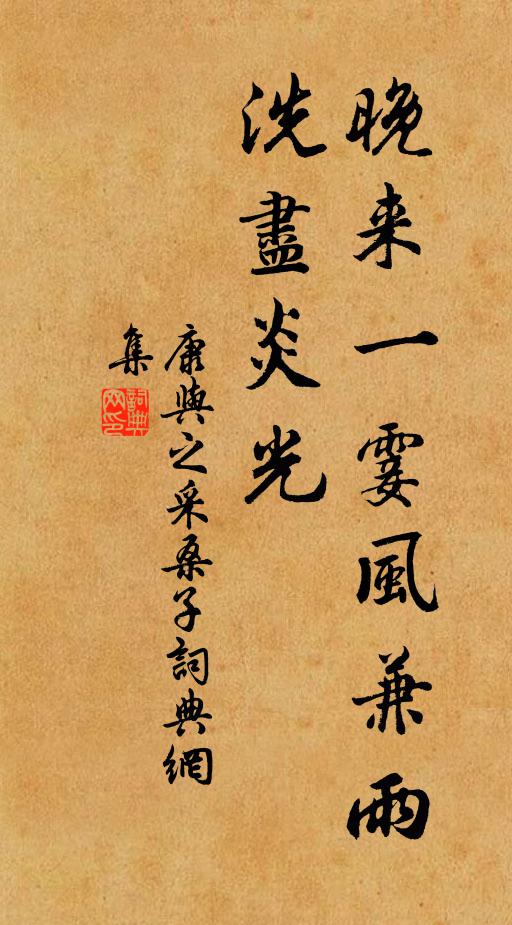 晚来一霎風兼雨
洗盡炎光
康與之采桑子詞典網
集
詞典
网印